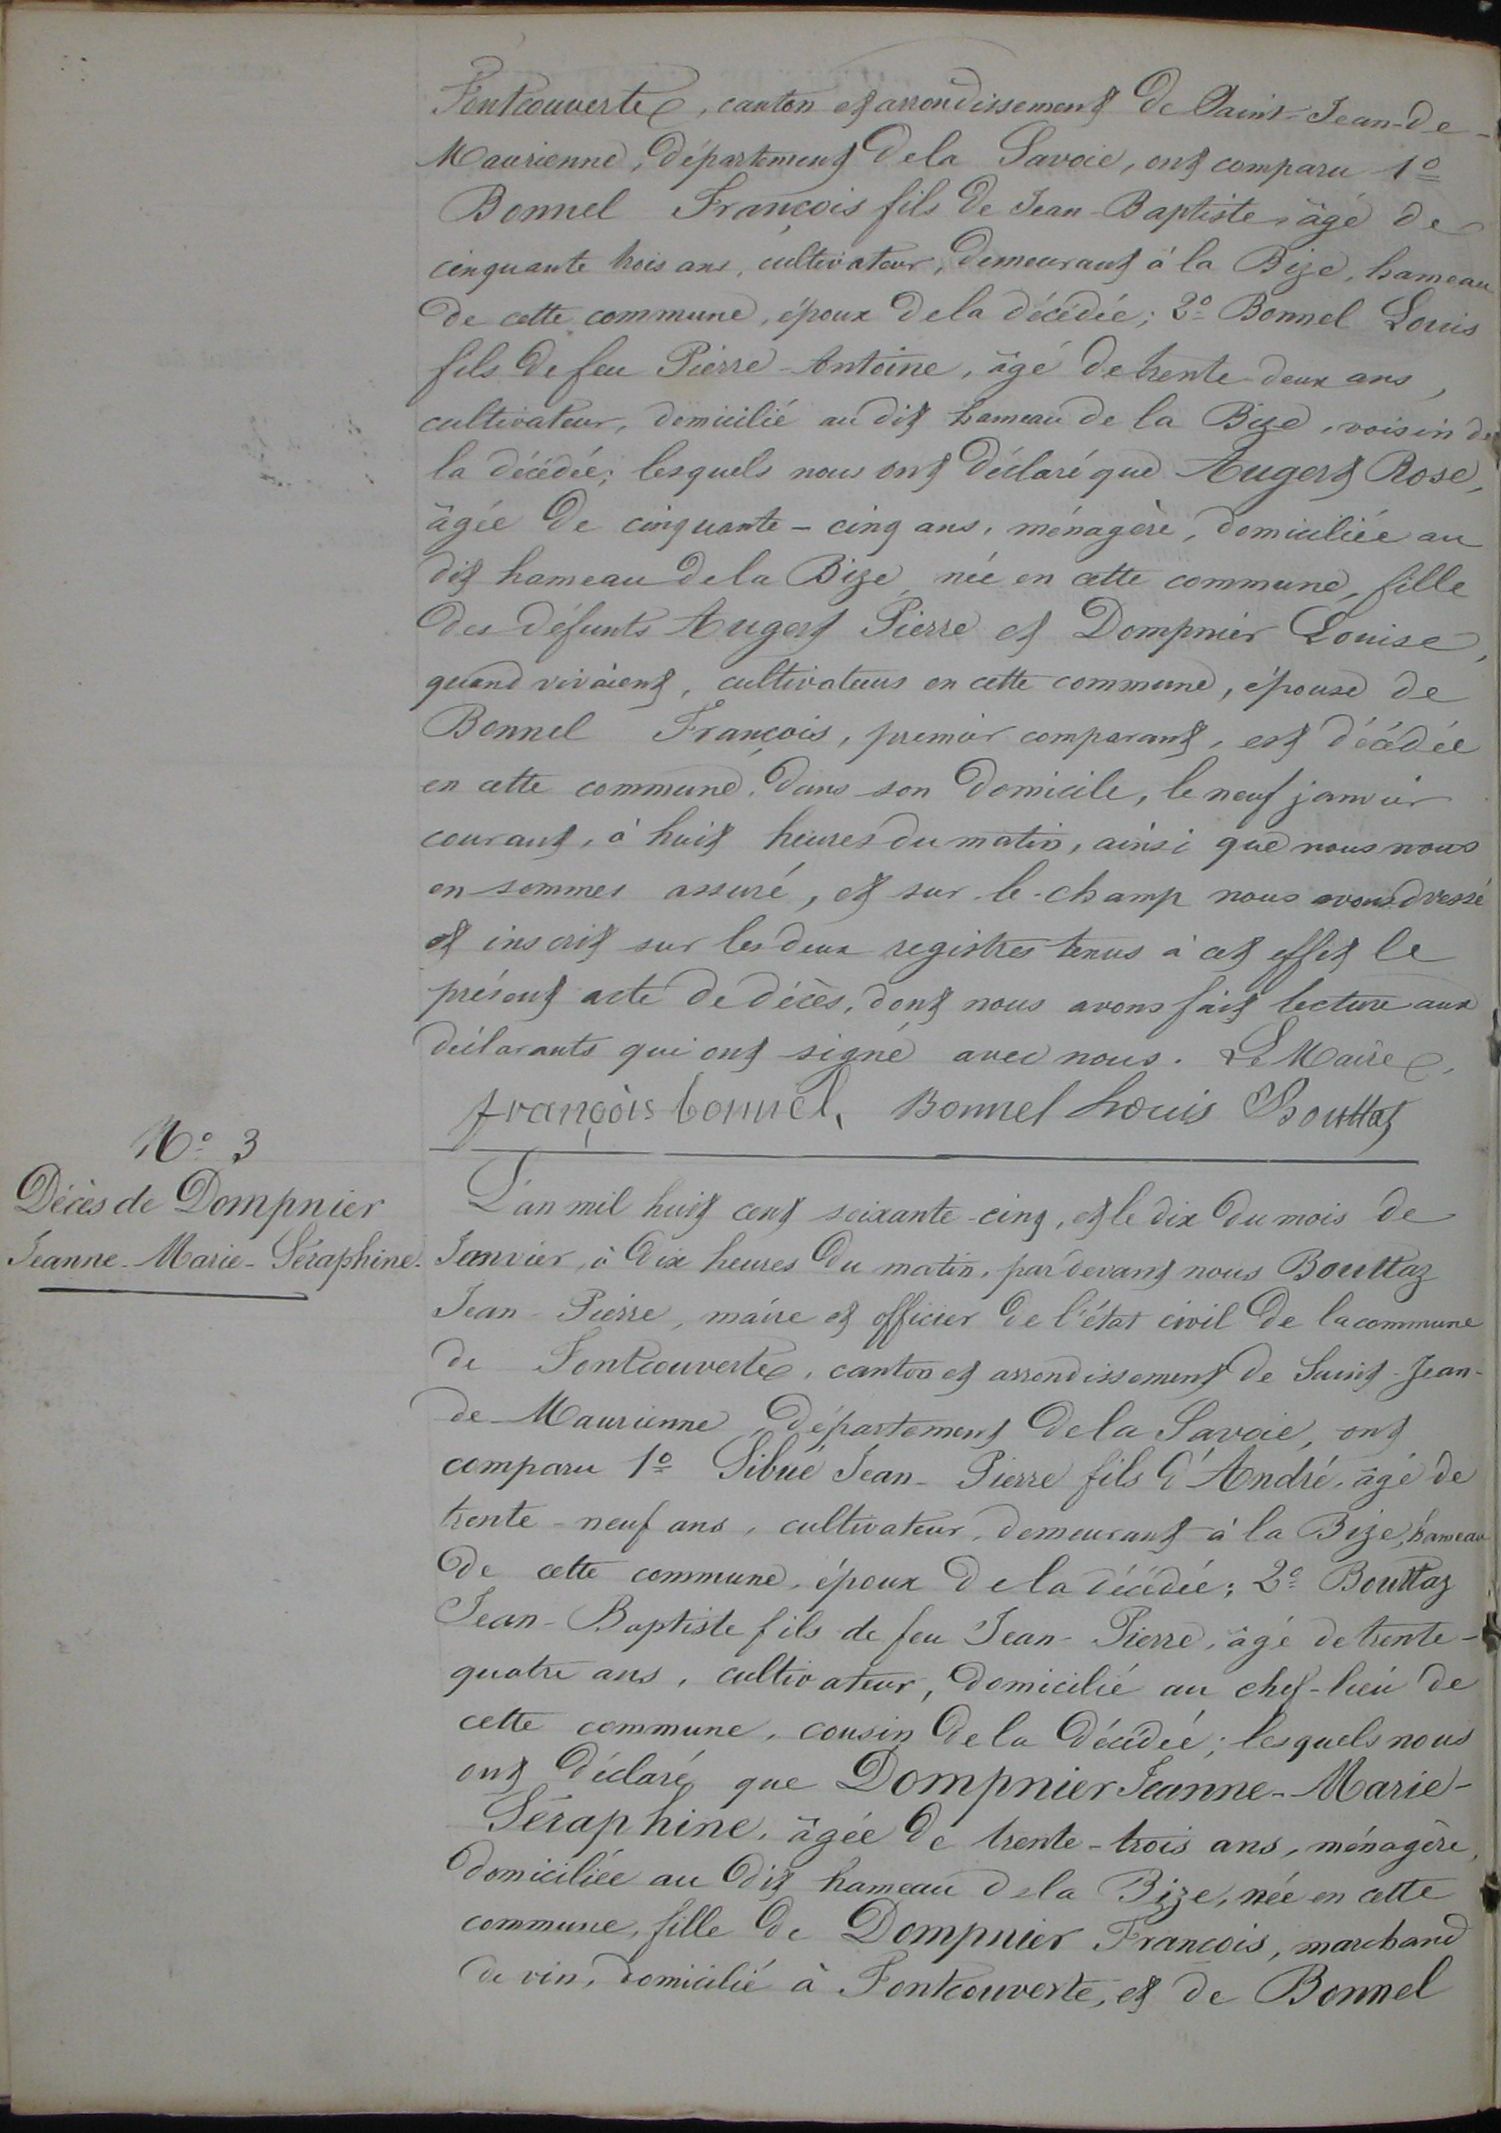 Fontcouverte, canton et arrondissement de Saint-Jean-de-
Maurienne, département de la Savoie, ont comparu 1º
Bonnel François fils de Jean-Baptiste, âgé de
cinquante trois ans, cultivateur, demeurant à la Bize, hameau
de cette commune, époux de la décédée; 2º Bonnel Louis
fils de feu Pierre-Antoine, âgé de trente-deux ans,
cultivateur, domicilié au dit hameau de la Bize, voisin de
la décédée; lesquels nous ont déclaré que Augert Rose,
âgée de cinquante-cinq ans, ménagère, domiciliée au
dit hameau de la Bize, née en cette commune, fille
des défunts Augert Pierre et Dompnier Louise,
quand vivaient, cultivateurs en cette commune, épouse de
Bonnel François, premier comparant, est décédée
en cette commune, dans son domicile, le neuf janvier
courant, à huit heures du matin, ainsi que nous nous
en sommes assuré, et sur-le-champ nous avons dressé
et inscrit sur les deux registres tenus à cet effet le
présent acte de décès, dont nous avons fait lecture aux
déclarants qui ont signé avec nous. Le Maire,
françois bonnel, Bonnel Louis Bouttaz
Nº 3
Décès de Dompnier
Jeanne-Marie-Séraphine.
L'an mil huit cent soixante-cinq, et le dix du mois de
Janvier, à dix heures du matin, par devant nous Bouttaz
Jean-Pierre, maire et officier de l'état civil de la commune
de Fontcouverte, canton et arrondissement de Saint-Jean-
de-Maurienne, département de la Savoie, ont
comparu 1º Sibué Jean-Pierre fils d'André, âgé de
trente-neuf ans, cultivateur, demeurant à la Bize, hameau
de cette commune, époux de la décédée; 2º Bouttaz
Jean-Baptiste fils de feu Jean-Pierre, âgé de trente-
quatre ans, cultivateur, domicilié au chef-lieu de
cette commune, cousin de la décédée; lesquels nous
ont déclaré que Dompnier Jeanne-Marie-
Séraphine, âgée de trente-trois ans, ménagère,
domiciliée au dit hameau de la Bize, née en cette
commune, fille de Dompnier François, marchand
de vin, domicilié à Fontcouverte, et de Bonnel